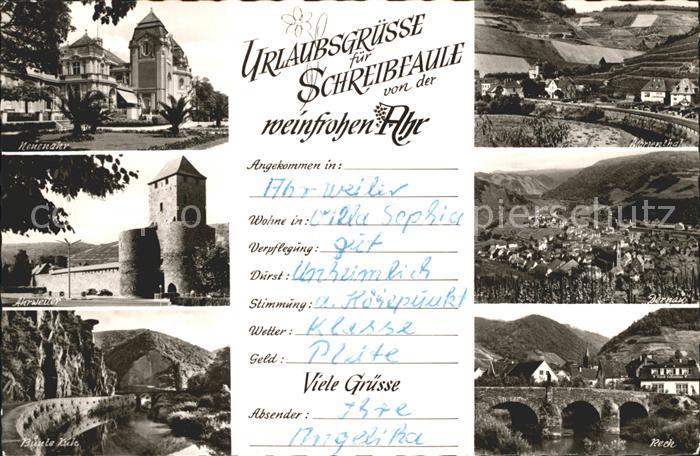 URLAUBSGRÜSSE
für
SCHREIBFAULE
von der
weinfrohen Ahr
Angekommen in:
Ahrweiler
Wohne in: Villa Sophia
Verpflegung: gut
Durst: Unheimlich
Stimmung: a. Höhepunkt
Wetter: Klasse
Geld: Pleite
Viele Grüsse
Absender: Ihre
Angelika
Neuenahr
Ahrweiler
Bunte Kuh
Marienthal
Dernau
Rech